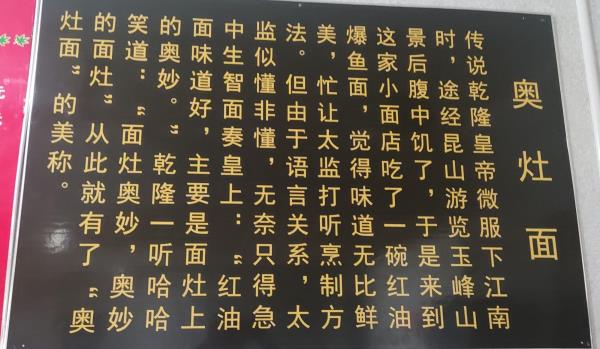 奥灶面
传说乾隆皇帝微服下江南
时，途经昆山游览玉峰山
景后腹中饥了，于是来到
这家小面店吃了一碗红油
爆鱼面，觉得味道无比鲜
美，忙让太监打听烹制方
法。但由于语言关系，太
监似懂非懂，无奈只得急
中生智面奏皇上：“红油
面味道好，主要是面灶上
的奥妙。”乾隆一听哈哈
笑道：“面灶奥妙，奥妙
的面灶”从此就有了“奥
灶面”的美称。